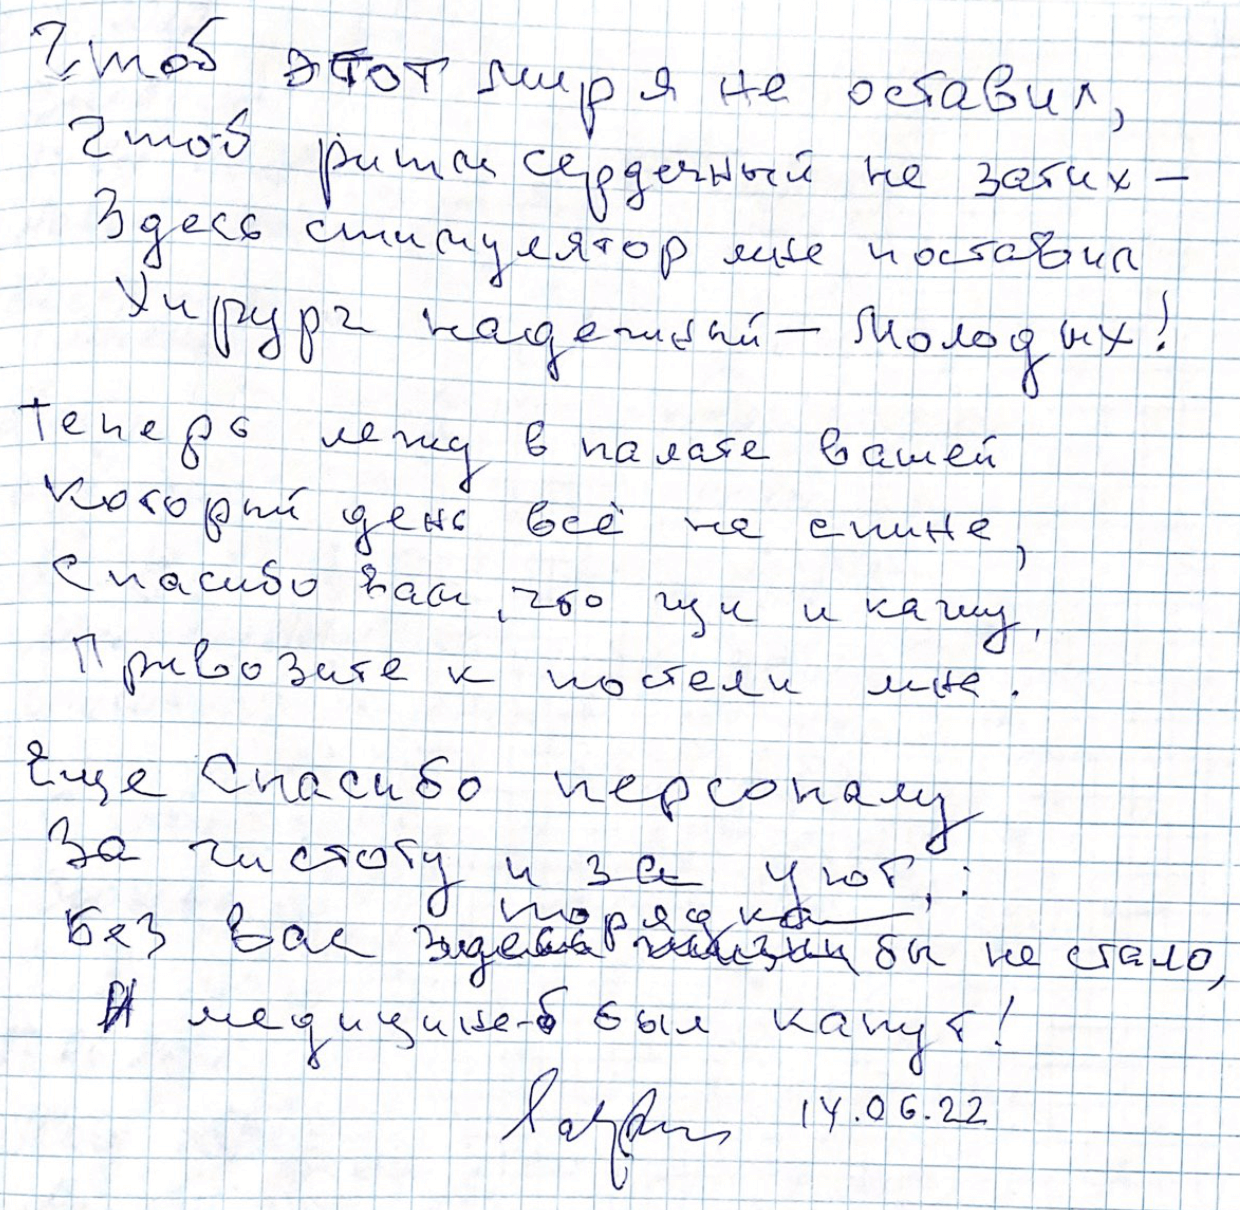 Чтоб этот мир я не оставил,
Чтоб ритм сердечный не затих –
Здесь стимулятор мне поставил
Хирург надежный – Молодых!
Теперь лежу в палате вашей
Который день всё на спине,
Спасибо вам, что щи и кашу,
Привозите к постели мне.
Еще Спасибо персоналу
За чистоту и за уют,:
порядка
Без вас здесь жизни бы не стало,
И медицине-б был капут!
14.06.22